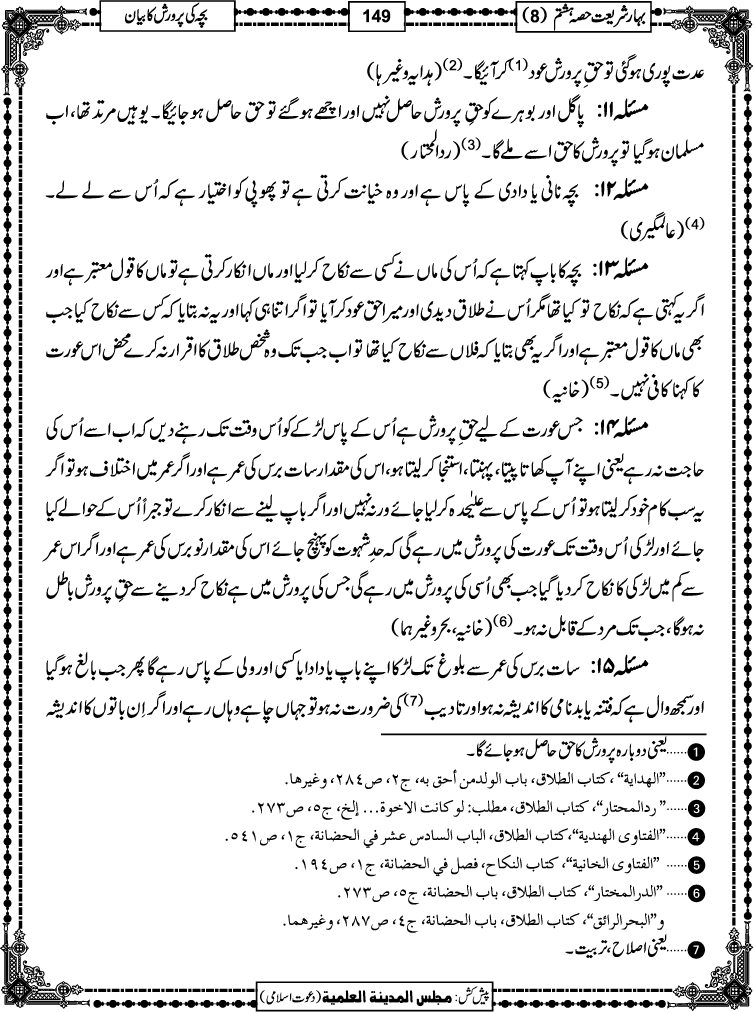 بہارشریعت حصہ ہشتم (8)
149
بچہ کی پرورش کا بیان
عدت پوری ہوگئی تو حقِ پرورش عود(1) کر آئیگا۔(2) (ہدایہ وغیرہا)
مسئلہ ۱۱: پاگل اور بوہرے کو حقِ پرورش حاصل نہیں اور اچھے ہوگئے تو حق حاصل ہو جائیگا۔ یوہیں مرتد تھا، اب
مسلمان ہوگیا تو پرورش کا حق اسے ملے گا۔(3) (ردالمحتار)
مسئلہ ۱۲: بچہ نانی یا دادی کے پاس ہے اور وہ خیانت کرتی ہے تو پھوپی کو اختیار ہے کہ اُس سے لے لے۔
(4) (عالمگیری)
مسئلہ ۱۳: بچہ کا باپ کہتا ہے کہ اُس کی ماں نے کسی سے نکاح کر لیا اور ماں انکار کرتی ہے تو ماں کا قول معتبر ہے اور
اگر یہ کہتی ہے کہ نکاح تو کیا تھا مگر اُس نے طلاق دیدی اور میرا حق عود کر آیا تو اگر اتنا ہی کہا اور یہ نہ بتایا کہ کس سے نکاح کیا جب
بھی ماں کا قول معتبر ہے اور اگر یہ بھی بتایا کہ فلاں سے نکاح کیا تھا تو اب جب تک وہ شخص طلاق کا اقرار نہ کرے محض اس عورت
کا کہنا کافی نہیں۔(5) (خانیہ)
مسئلہ ۱۴: جس عورت کے لیے حقِ پرورش ہے اُس کے پاس لڑکے کو اُس وقت تک رہنے دیں کہ اب اسے اُس کی
حاجت نہ رہے یعنی اپنے آپ کھاتا پیتا، پہنتا، استنجا کر لیتا ہو، اس کی مقدار سات برس کی عمر ہے اور اگر عمر میں اختلاف ہو تو اگر
یہ سب کام خود کر لیتا ہو تو اُس کے پاس سے علیٰحدہ کر لیا جائے ورنہ نہیں اور اگر باپ لینے سے انکار کرے تو جبراً اُس کے حوالے کیا
جائے اور لڑکی اُس وقت تک عورت کی پرورش میں رہے گی کہ حدِ شہوت کو پہنچ جائے اس کی مقدار نو برس کی عمر ہے اور اگر اس عمر
سے کم میں لڑکی کا نکاح کر دیا گیا جب بھی اُسی کی پرورش میں رہے گی جس کی پرورش میں ہے نکاح کر دینے سے حقِ پرورش باطل
نہ ہوگا، جب تک مرد کے قابل نہ ہو۔(6) (خانیہ، بحر وغیرہما)
مسئلہ ۱۵: سات برس کی عمر سے بلوغ تک لڑکا اپنے باپ یا دادا یا کسی اور ولی کے پاس رہے گا پھر جب بالغ ہوگیا
اور سمجھ وال ہے کہ فتنہ یا بدنامی کا اندیشہ نہ ہو اور تادیب(7) کی ضرورت نہ ہو تو جہاں چاہے وہاں رہے اور اگر اِن باتوں کا اندیشہ
1 ......یعنی دوبارہ پرورش کا حق حاصل ہو جائے گا۔
2 ......"الهداية"، كتاب الطلاق، باب الولد من أحق به، ج٢، ص٢٨٤، وغيرها.
3 ......"ردالمحتار"، كتاب الطلاق، مطلب: لو كانت الاخوة... إلخ، ج٥، ص٢٧٣.
4 ......"الفتاوى الهندية"، كتاب الطلاق، الباب السادس عشر في الحضانة، ج١، ص٥٤١.
5 ......"الفتاوى الخانية"، كتاب النكاح، فصل في الحضانة، ج١، ص١٩٤.
6 ......"الدرالمختار"، كتاب الطلاق، باب الحضانة، ج٥، ص٢٧٣.
و"البحرالرائق"، كتاب الطلاق، باب الحضانة، ج٤، ص٢٨٧، وغيرهما.
7 ......یعنی اصلاح، تربیت۔
پیش کش: مجلس المدينة العلمية (دعوت اسلامی)